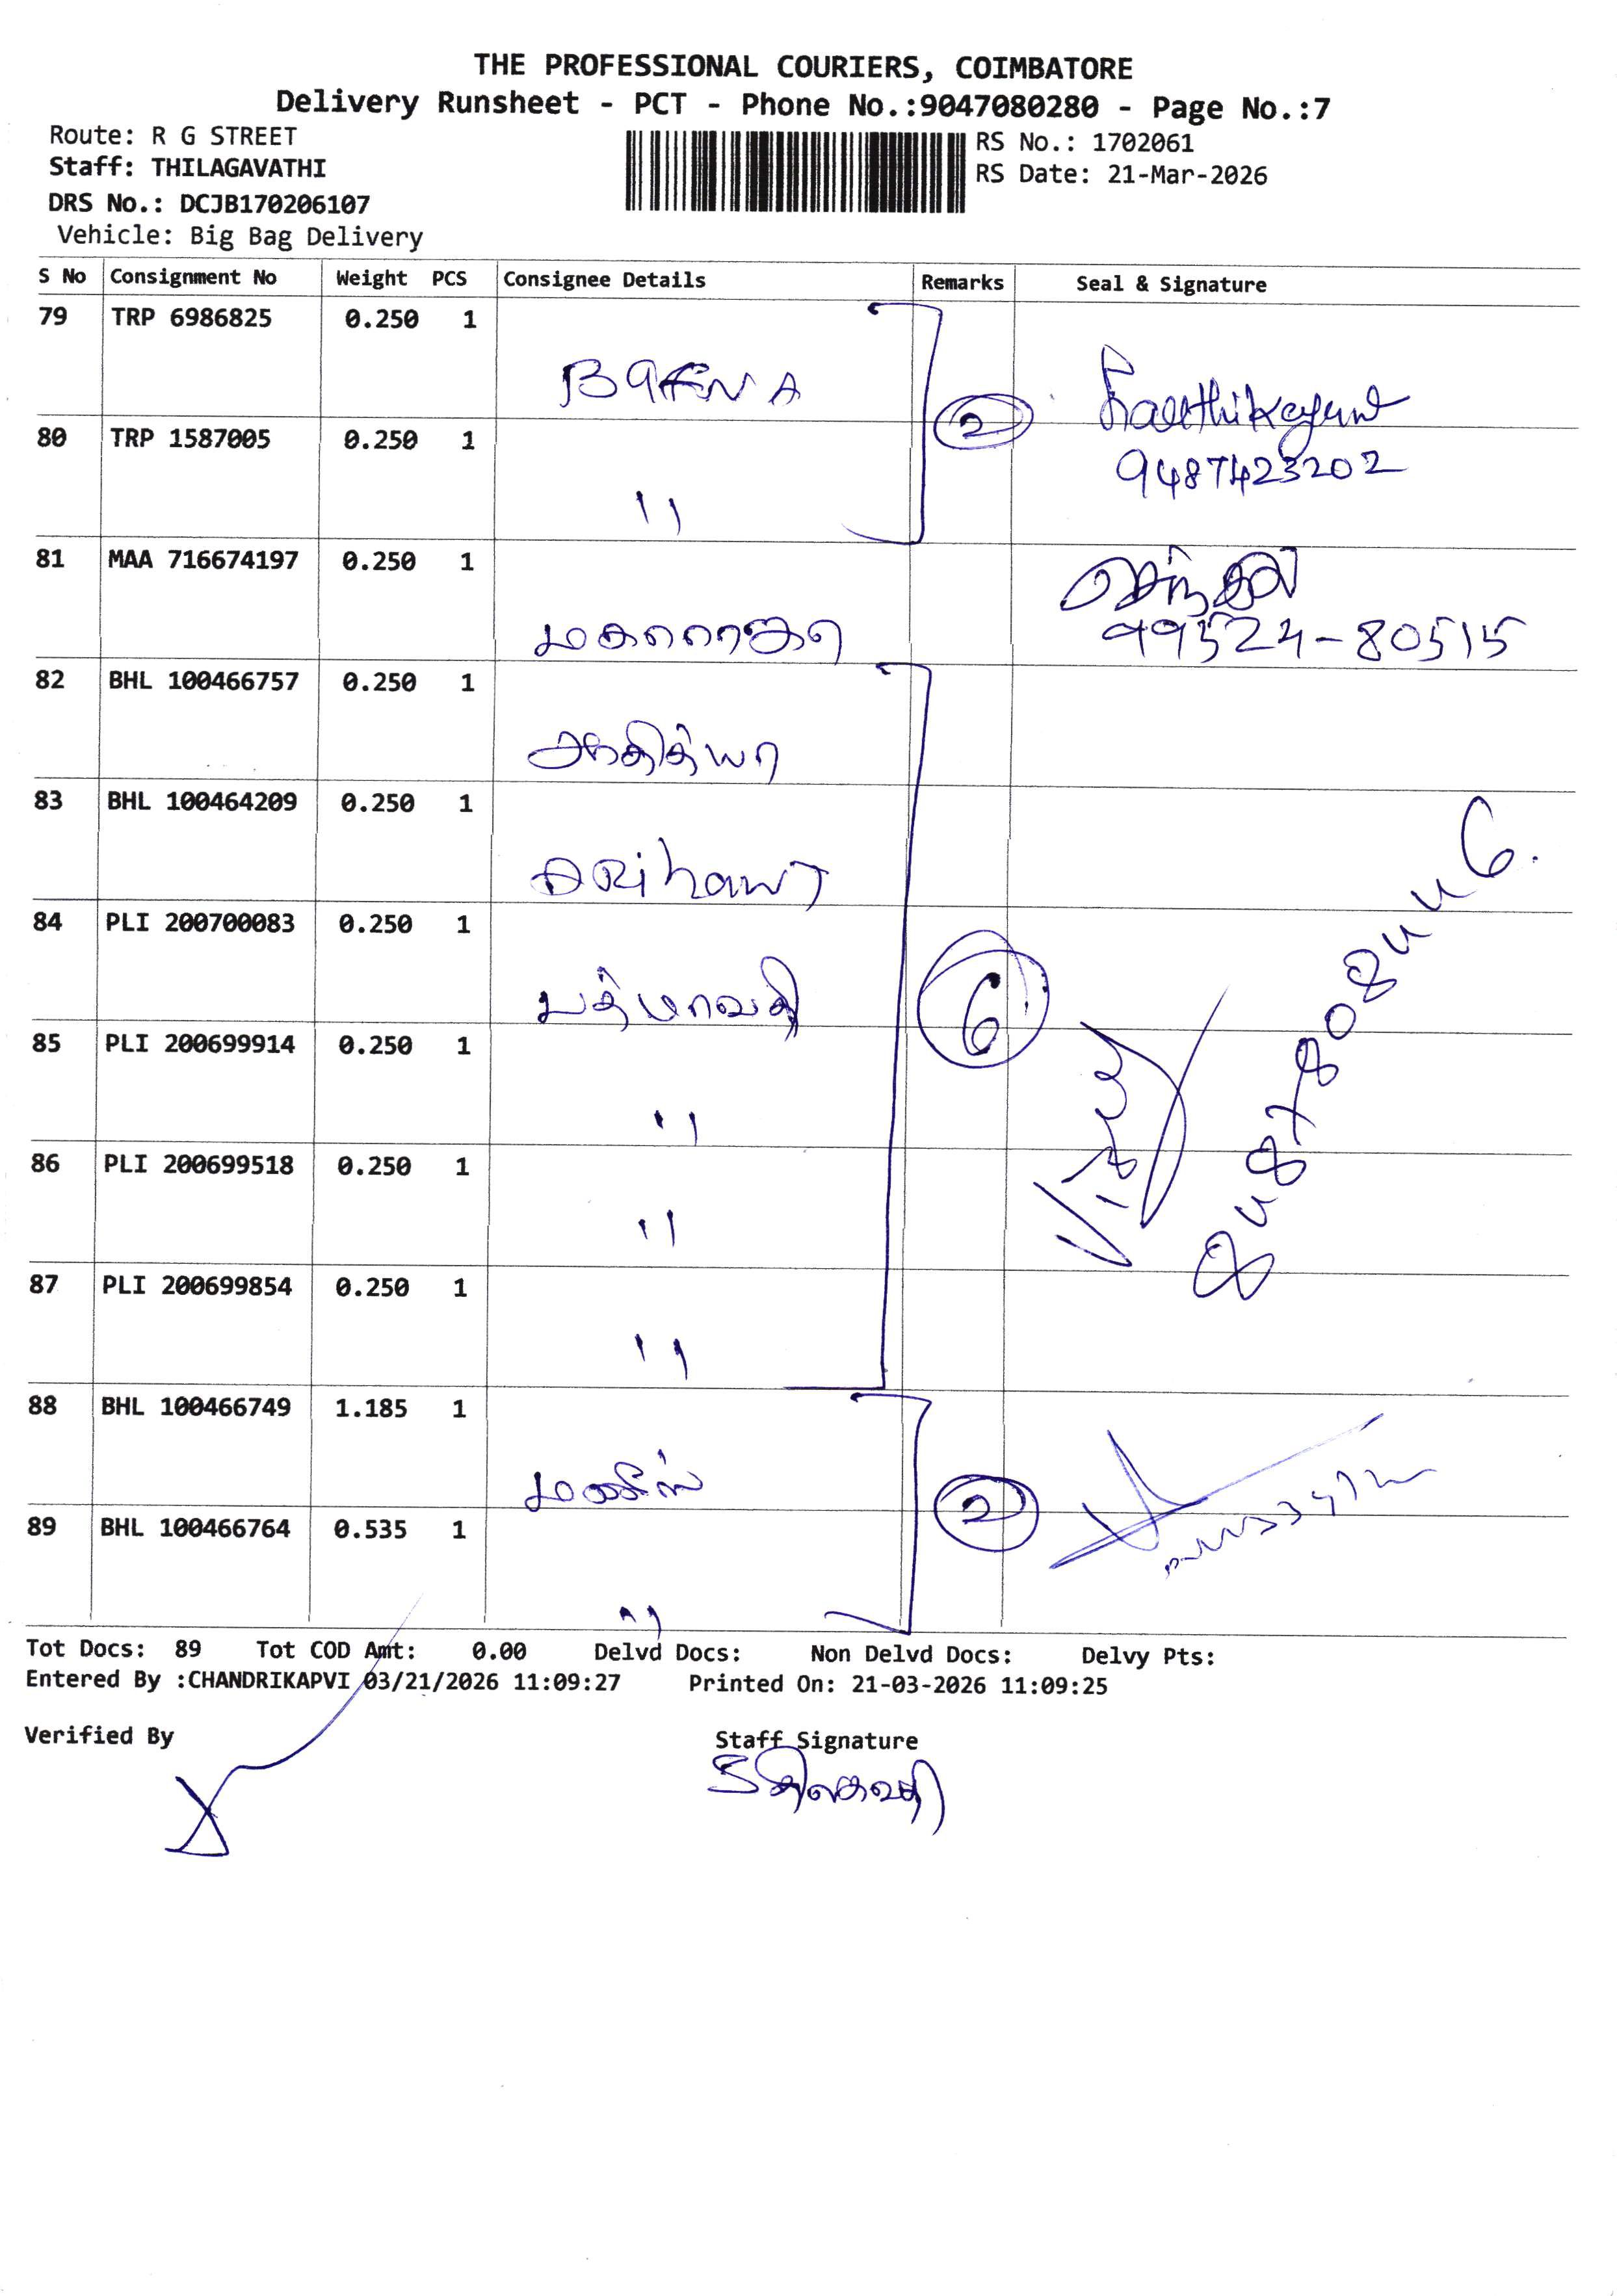 THE PROFESSIONAL COURIERS, COIMBATORE
Delivery Runsheet - PCT - Phone No.:9047080280 - Page No.:7
Route: R G STREET
RS No.: 1702061
Staff: THILAGAVATHI
RS Date: 21-Mar-2026
DRS No.: DCJB170206107
Vehicle: Big Bag Delivery
S No Consignment No Weight PCS Consignee Details Remarks Seal & Signature
79 TRP 6986825 0.250 1
80 TRP 1587005 0.250 1 " 2
9487423202
81 MAA 716674197 0.250 1
99524-80515
82 BHL 100466757 0.250 1 ஆதித்யா
83 BHL 100464209 0.250 1 ARihanT
84 PLI 200700083 0.250 1 பத்மாவதி 6
85 PLI 200699914 0.250 1 "
86 PLI 200699518 0.250 1 "
87 PLI 200699854 0.250 1 "
88 BHL 100466749 1.185 1
89 BHL 100466764 0.535 1 " 2
Tot Docs: 89 Tot COD Amt: 0.00 Delvd Docs: Non Delvd Docs: Delvy Pts:
Entered By :CHANDRIKAPVI 03/21/2026 11:09:27 Printed On: 21-03-2026 11:09:25
Verified By Staff Signature